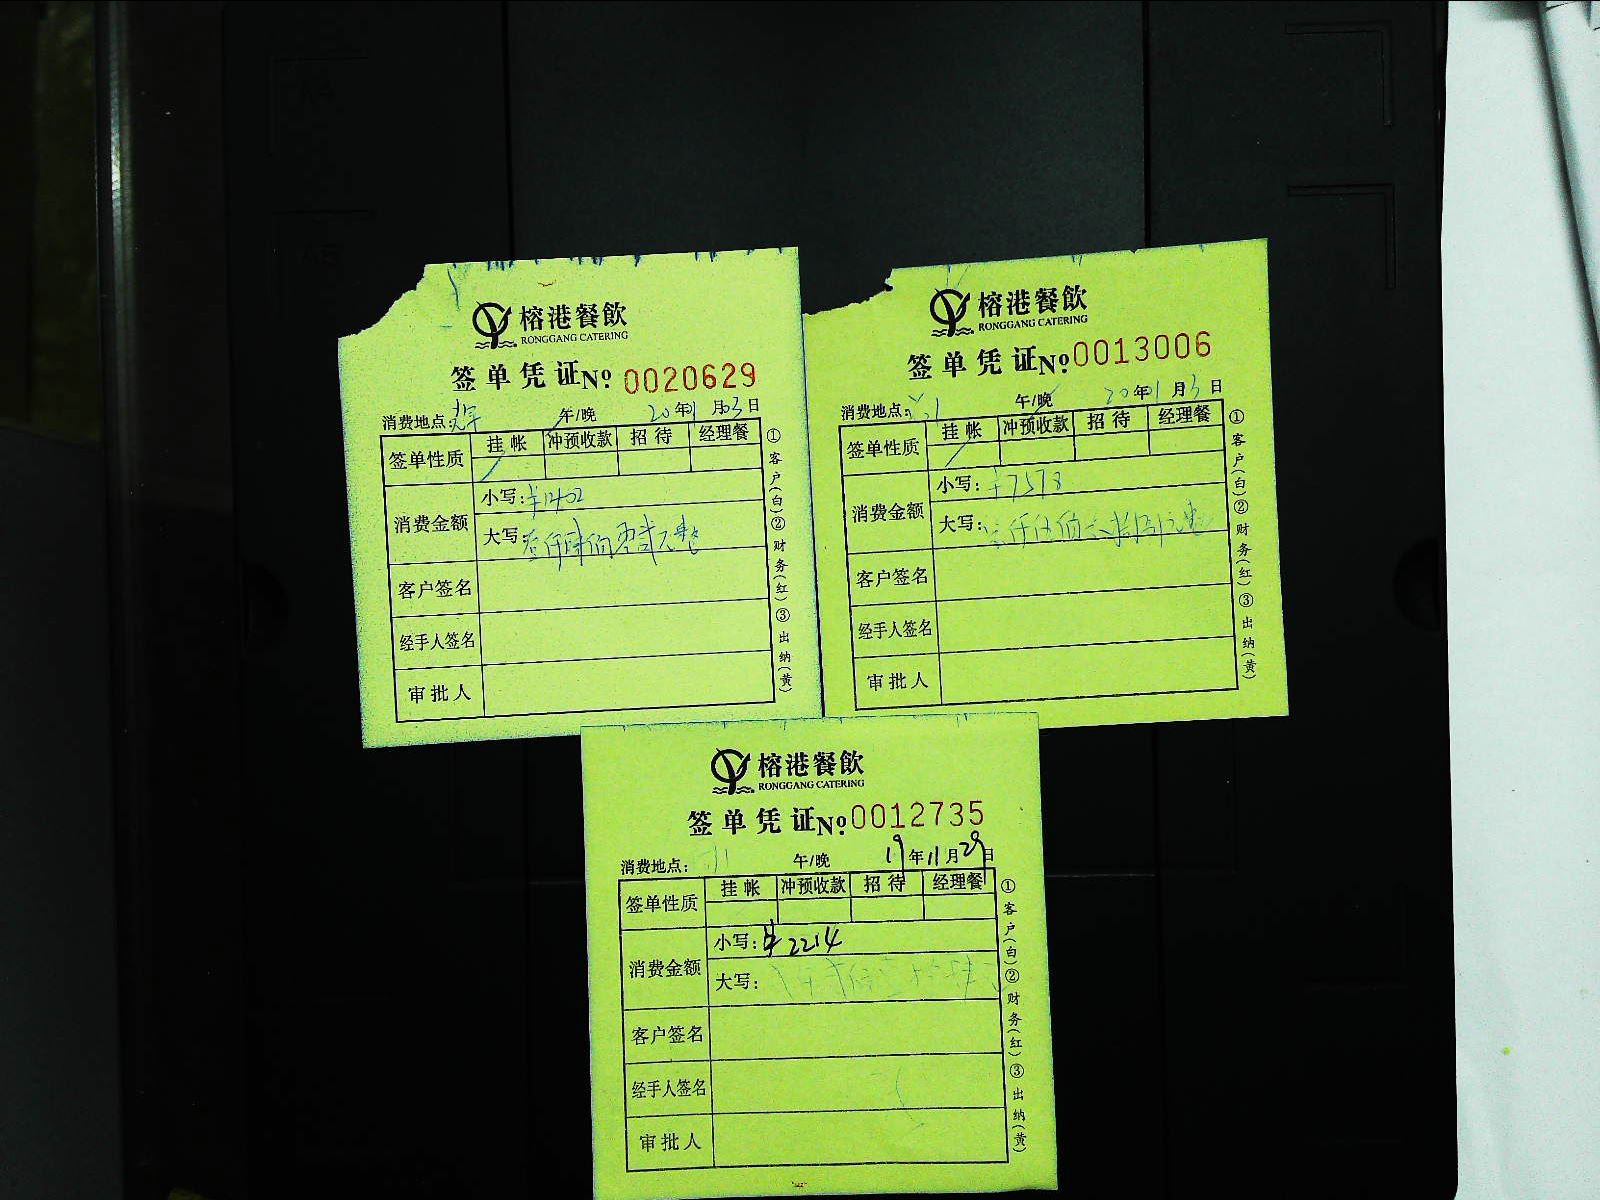 榕港餐飲
RONGGANG CATERING
签单凭证№ 0020629
消费地点: 午/晚 20年01月03日
签单性质 挂帐 冲预收款 招待 经理餐
消费金额
小写:¥1402
大写:壹仟肆佰零贰元整
客户签名
经手人签名
审批人
①客户(白)②财务(红)③出纳(黄)
榕港餐飲
RONGGANG CATERING
签单凭证№ 0013006
消费地点: 午/晚 20年1月3日
签单性质 挂帐 冲预收款 招待 经理餐
消费金额
小写:¥
大写:
客户签名
经手人签名
审批人
①客户(白)②财务(红)③出纳(黄)
榕港餐飲
RONGGANG CATERING
签单凭证№ 0012735
消费地点: 午/晚 19年11月29日
签单性质 挂帐 冲预收款 招待 经理餐
消费金额
小写:¥2214
大写:
客户签名
经手人签名
审批人
①客户(白)②财务(红)③出纳(黄)